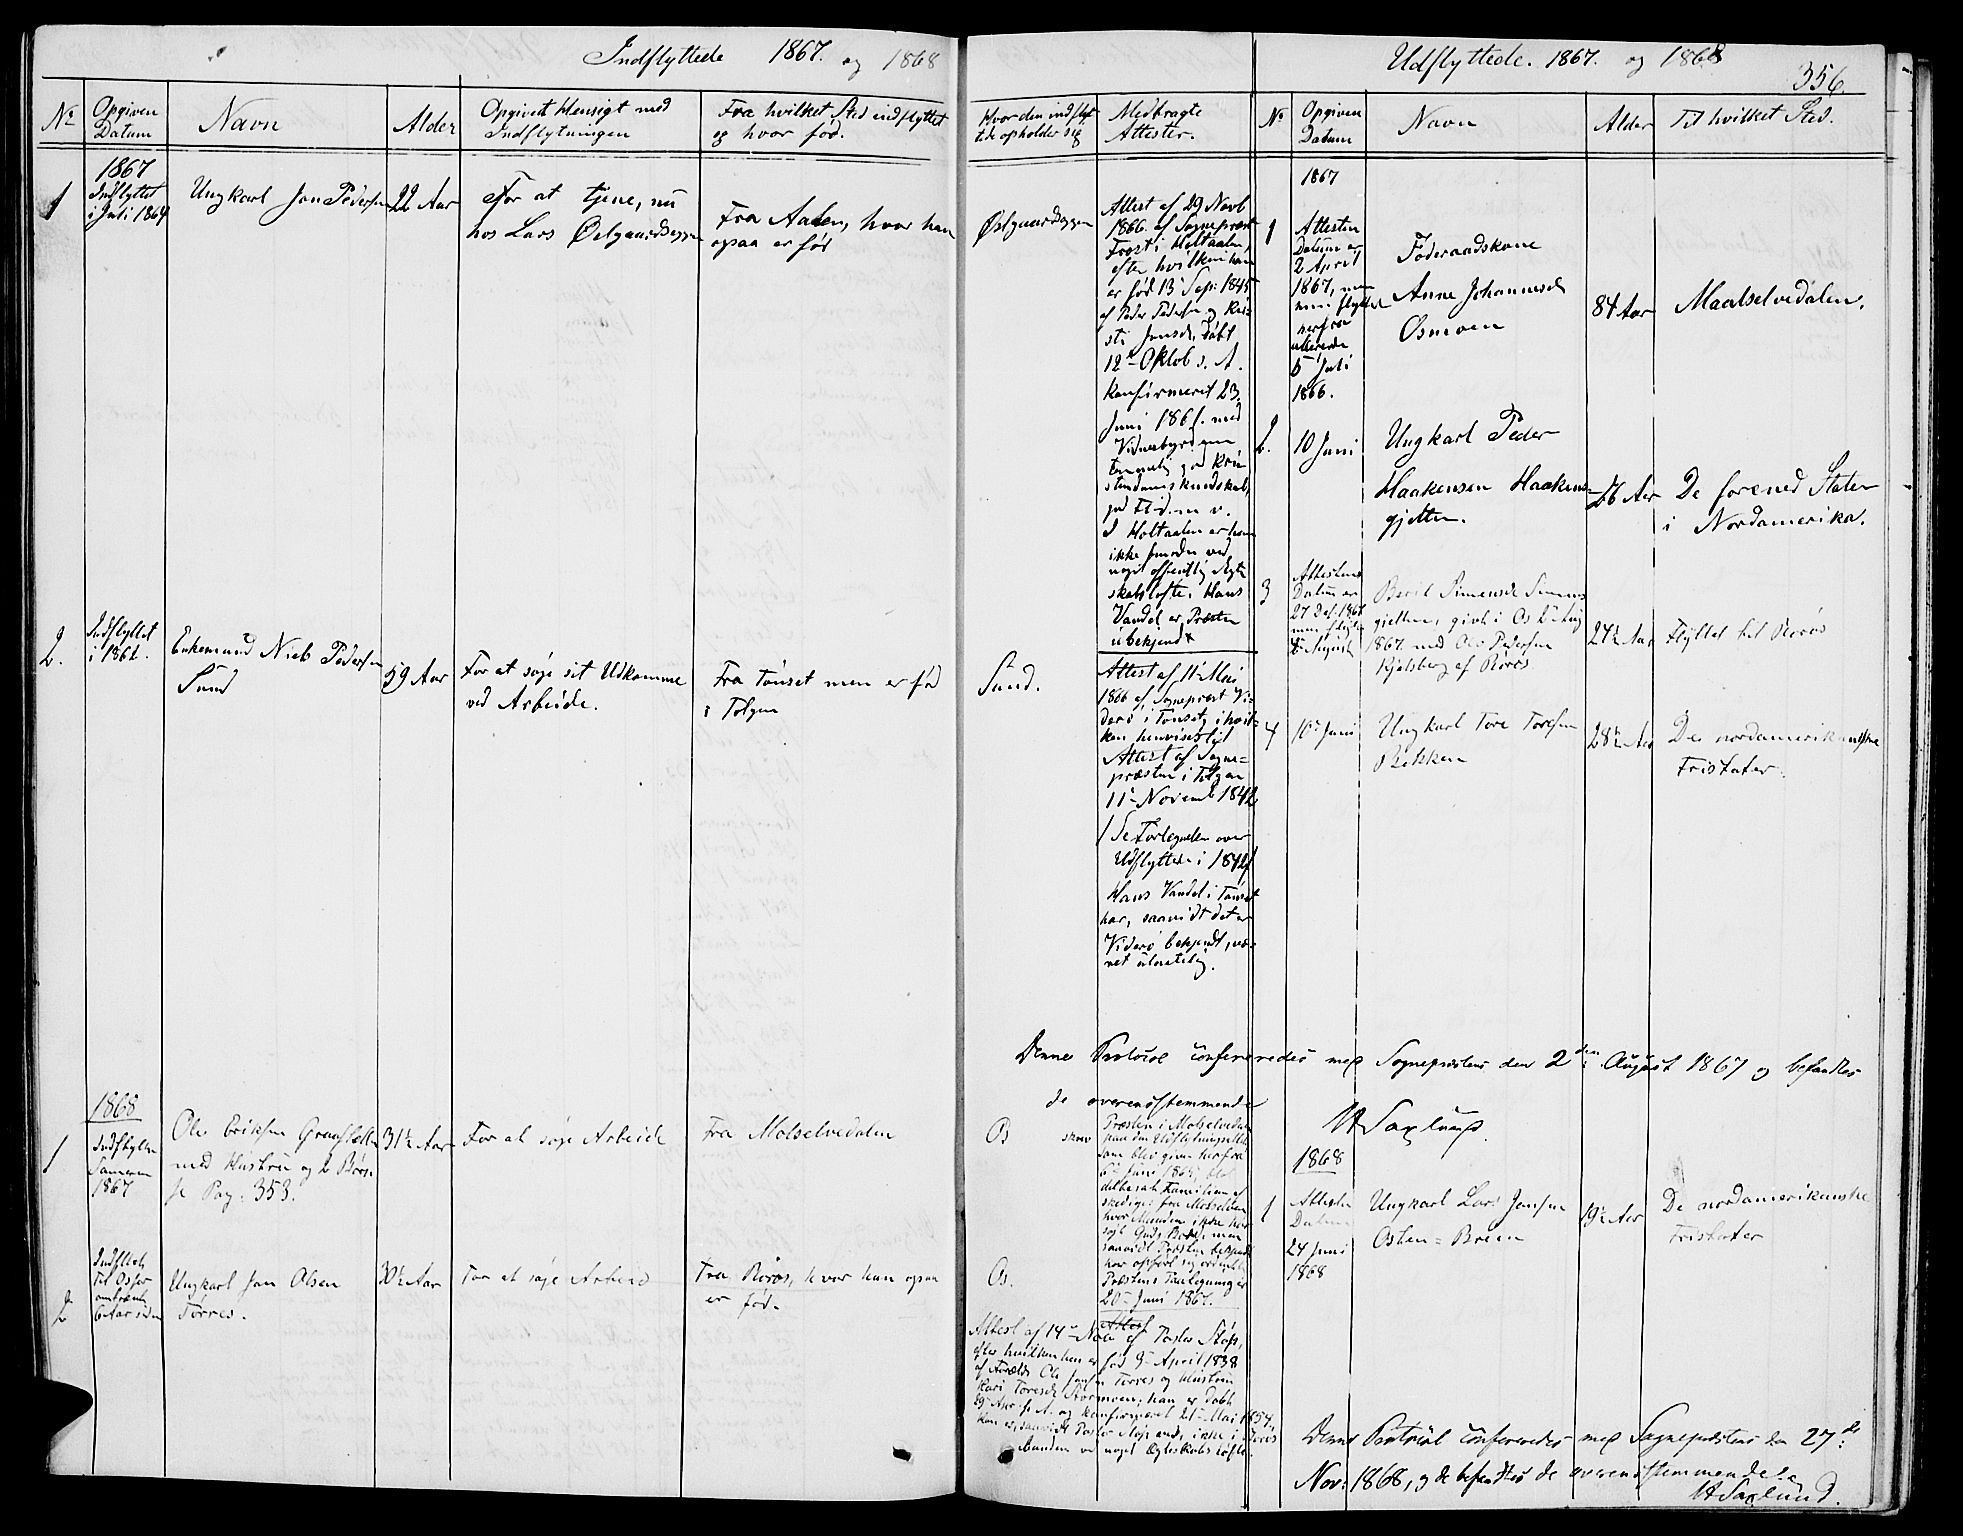 Indflyttede 1867. og 1868
No
Opgiven
Datum
Navn
Alder
Opgivet Hensigt med
Indflytningen
Fra hvilket Sted indflyttet
og hvor fød.
Hvor den indflyt
tede opholder sig
Medbragte
Attester.
1867
1
Indflyttet
i Juli 1864
Ungkarl Jon Pedersen
22 Aar
For at tjene, nu
hos Lars Øelgaardseggen
Fra Aalen, hvor han
ogsaa er fød
Øelgaardseggen
Attest af 29 Novb
1866. af Sogneprest
Frost i Holtaalen,
efter hvilken han
er fød 13 Sep: 1845
af Peder Pedersen og Kir-
sti Jonsd. døbt
12te Oktob s. A.
Konfirmeret 23
Juni 1861. med
Vidnesbyrd om
temmelig god Kri-
stendomskundskab,
god Flid. m v.
I Holtaalen er han
ikke bunden ved
noget offentlig Ægte
skabsløfte. Hans
Vandel er Præsten
ubekjendt
2.
Indflyttet
i 1862.
Enkemand Niels Pedersen
Sund
59 Aar
For at søge sit Udkomme
ved Arbeide.
Fra Tønset men er fød
i Tolgen
Sund.
Attest af 11te Mai
1866 af Sogneprest Vi-
derø i Tønset, i hvil-
ken henvises til
Attest af Sogne-
præsten i Tolgen
11te Novemb 1842
(Se Fortegnelsen over
Udflyttede i 1842)
Hans Vandel i Tønset
har, saavidt det er
Viderø bekjendt, væ-
ret ulastelig.
1868
1
Indflyttet
Sommeren
1867
Ole Eriksen Graasletten
med Hustru og 2 Børn
se Pag: 353.
31½ Aar
For at søge Arbeide
Fra Molselvedalen
Os
Præsten i Molselvedalen
paa den Udflytningsattest
som blev given herfra
6te Juni
hvor Manden ikke har
søgt Guds Bord, men
saavidt Præsten bekjendt
har opført sig ordentlig
Præstens Paategning er
20te Juni 1867.
2
Indflytt.
til Os for
omtrent
6 Aar siden
Ungkarl Jon Olsen
Torres.
30½ Aar
For at søge Arbeid
Fra Røros, hvor han ogsaa
er fød.
Os.
Attest
Attest af 14de Nov af Pastor Støp,
efter hvilken han er fød 9de April 1838
af Forældre Ole Jonsen Torres og Hustru
Kari Toresd. Stormoen; han er døbt
29de Apr s. A. og konfirmeret 21de Mai 1854,
Han er, saavidt Pastor Støp ved, ikke i Røros
bunden ved noget Ægteskabsløfte.
Udflyttede. 1867. og 1868
356.
No
Opgiven
Datum
Navn
Alder
Til hvilket Sted.
1867
1
Attesten
Datum er
2 April
1867, men
hun flyttede
herfra
allerede
5 Juli
1866.
Føderaadskone
Anne Johannesd
Osmoen
84 Aar
Maalselvedalen.
2.
10 Juni
Ungkarl Peder
Haakensen Haakens-
gjetten.
26 Aar
De forened Stater
i Nordamerika.
3
Attestens
Datum er
27 Dec. 1867
men flyttede
i August
Berit Simensd. Simens
gjetten, givt i Os
1867. med Ole Pedersen
Kjelsberg af Røros
27½ Aar
Flyttet til Røros
4
10de Juni
Ungkarl Tore Toresen
Bakken
28½ Aar
De nordamerikanske
Fristater.
Denne Protocol confereredes med Sognepræstens den 2den August 1867 og befandtes
de overensstemmende
H Saxlund.
1868
1
Attestens
Datum
24 Juni
1868
Ungkarl Lars Jonsen
Østen-Breen
19½ Aar
De nordamerikanske
Fristater
Denne Protocol confereredes med Sognepræstens den 27de
Nov: 1868, og de befandtes de overensstemmende.
H Saxlund.